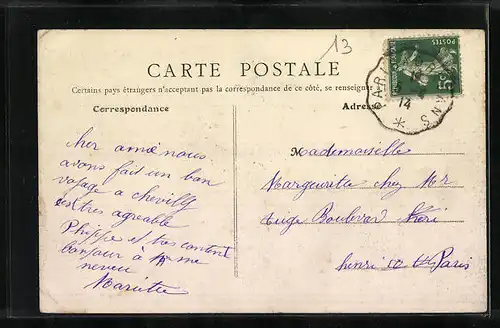 13
CARTE POSTALE
Certains pays étrangers n'acceptent pas la correspondance de ce côté, se renseigner
Correspondance
Adresse
POSTES
5c
14
cher amie nous
avons fait un bon
voyage a chevilly
est tres agreable
Phippe et tres contant
bonjour à
neveu
Mademoiselle
Margeurete chez Mr
Boulevar
henri Paris